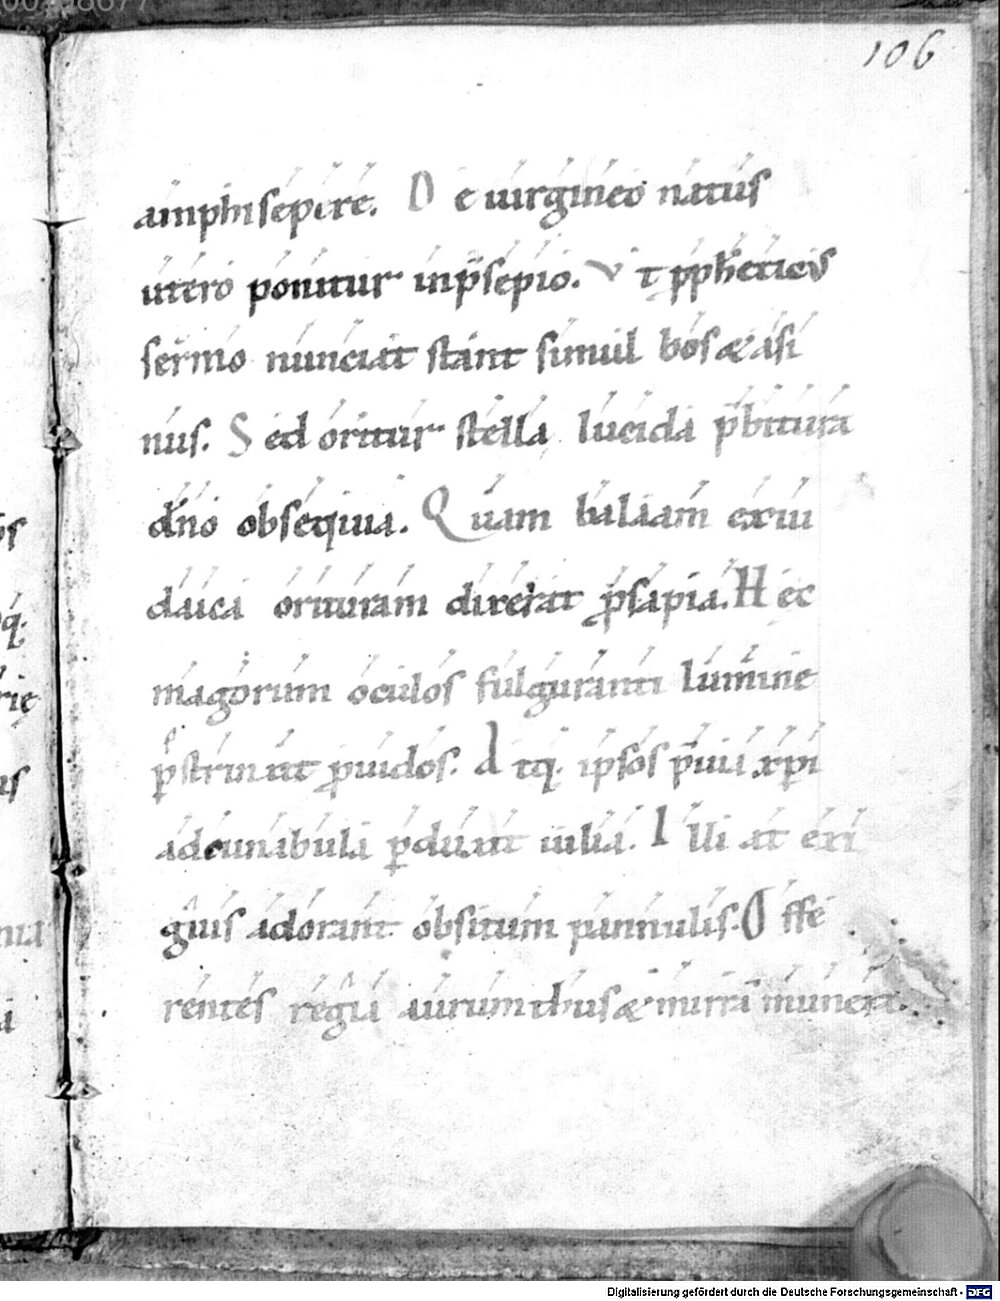 106
amphisepere. De uirgineo natus
utero ponitur inp̄sepio. Vt ꝓph̄eticus
sermo nunciat stant simul bos & asi
nus. Sed oritur stella lucida p̄bitura
dn̄o obsequia. Quam balaam ex iu
daica orituram dixerat ꝓsapia. Hec
magorum oculos fulguranti lumine
p̄strinxit ꝓuidos. Atq; ipsos p̄uia xp̄i
ad cunabula ꝑduxit uilia. Illi at exi
guis adorant obsitum pannulis. Offe
rentes regia aurum thus & mirra munera.
Digitalisierung gefördert durch die Deutsche Forschungsgemeinschaft - DFG